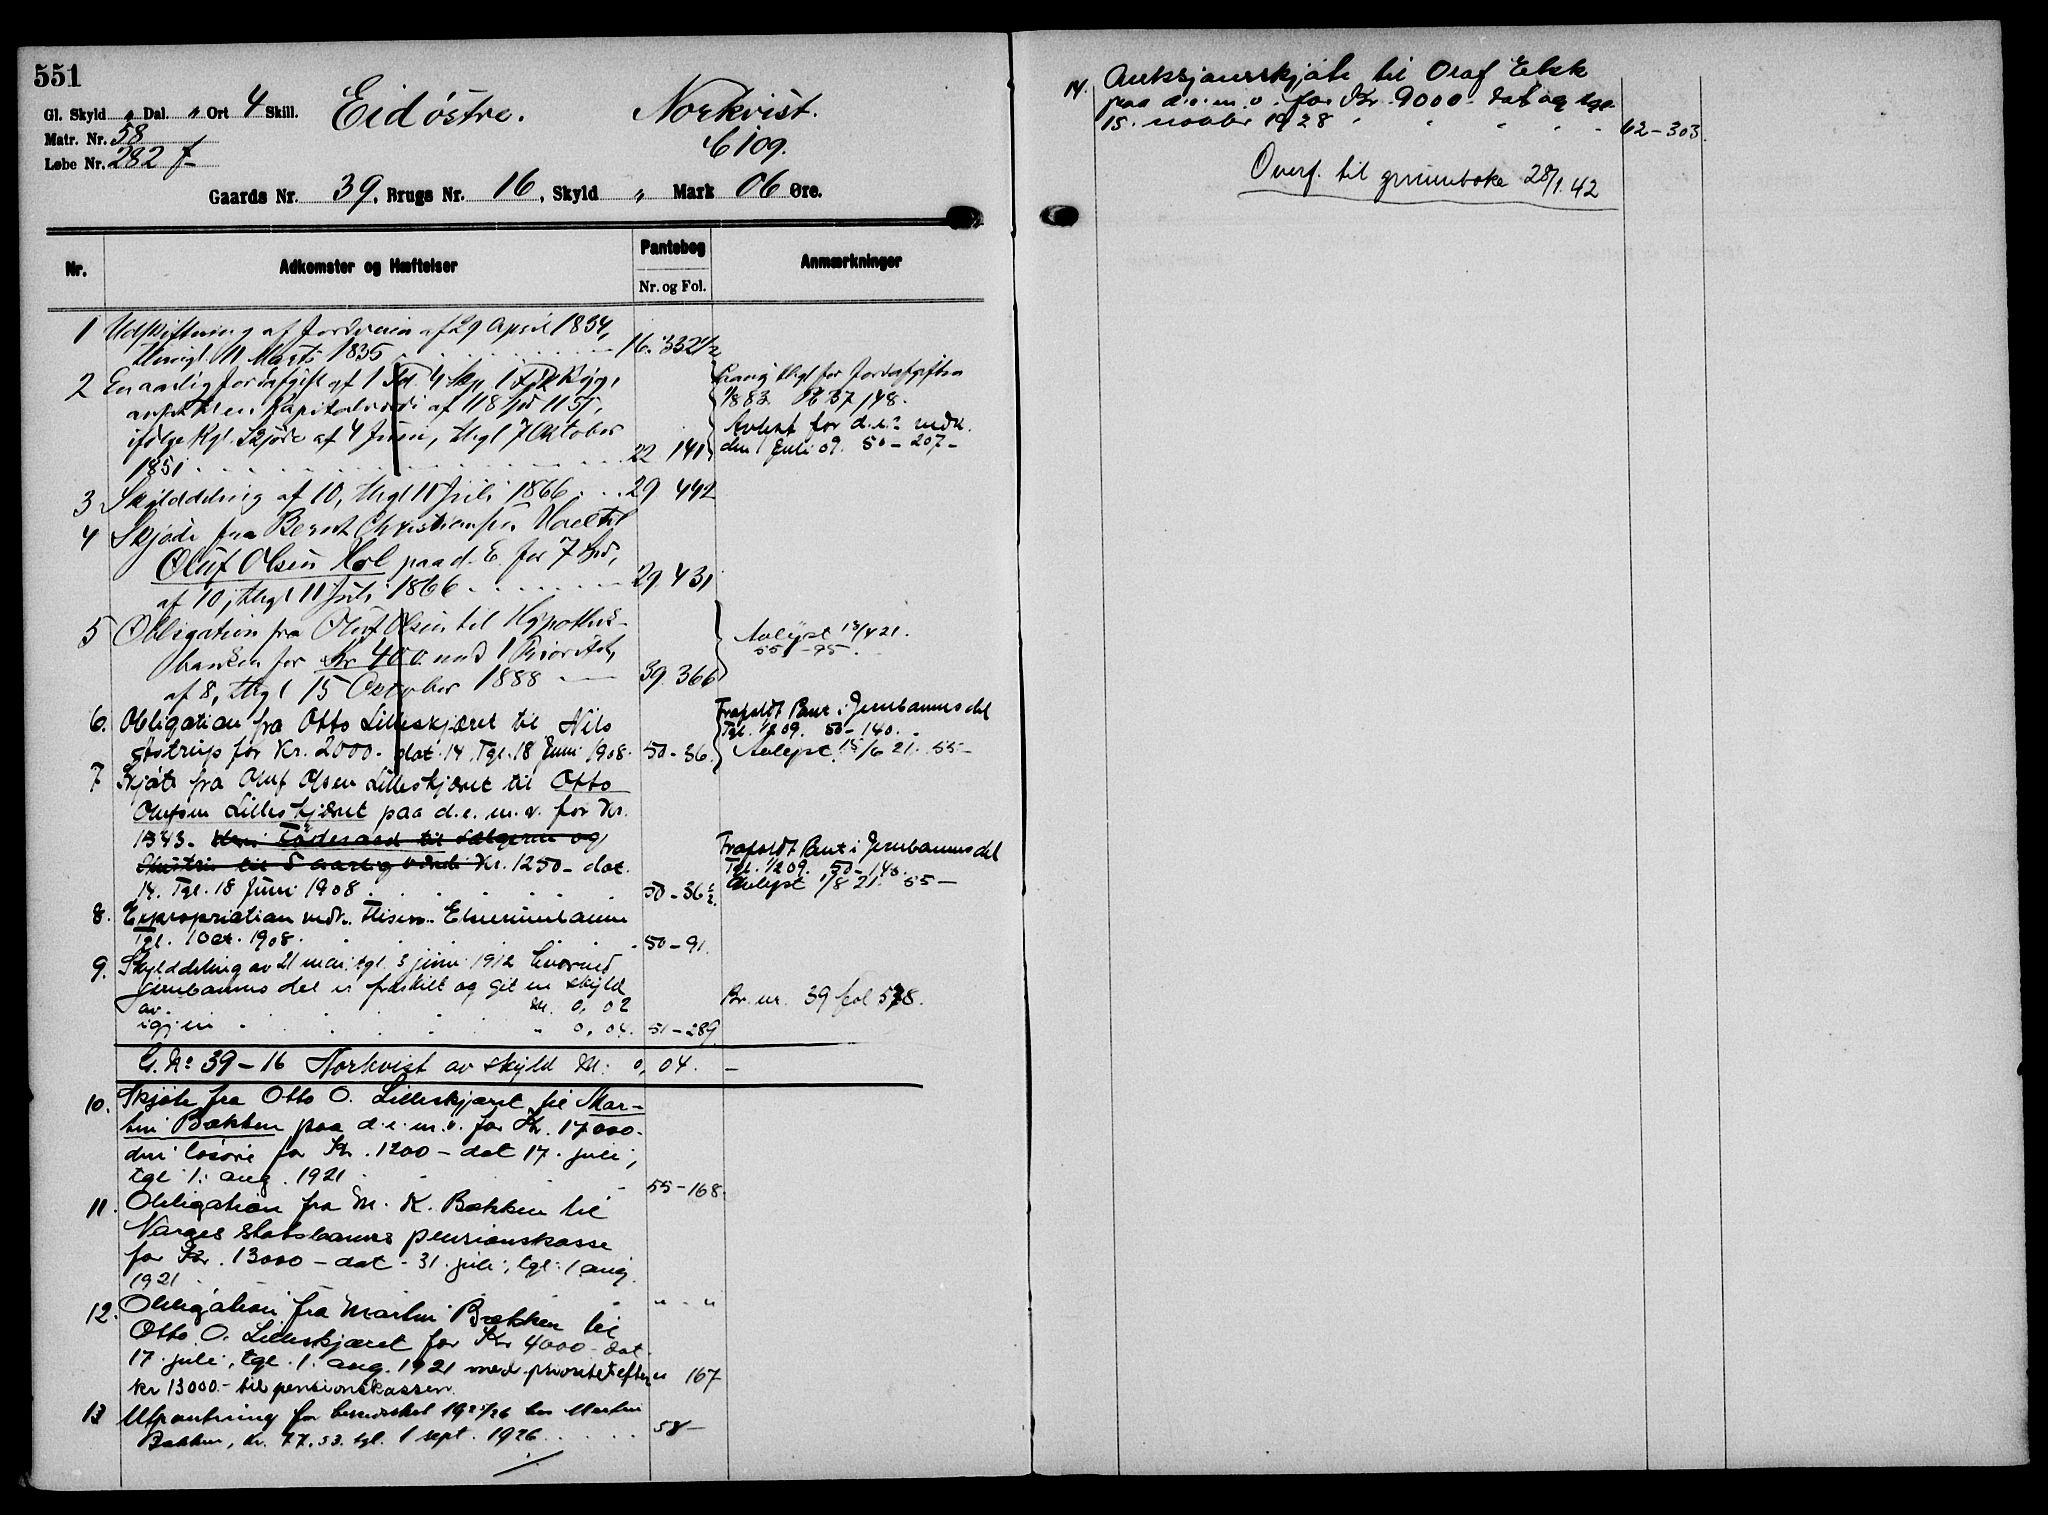 551
Gl. Skyld „ Dal. „ Ort 4 Skill. Eid østre. Norkvist.
Matr. Nr. 58
Løbe Nr. 282 f
Gaards Nr. 39, Brugs Nr. 16, Skyld „ Mark 06 Øre.
Nr. Adkomster og Hæftelser Pantebog Nr. og Fol. Anmærkninger
1 Udskiftning af Jordveien af 29 April 1834,
thingl. 11 Marts 1835 16. 332 1/2
2 En aarlig Jordafgift af 1 Td. 4 Skp.
en Kapitalværdi af 118 Spd 11 ß,
ifølge Kgl. Skjøde af 4 Juni, thgl 7 Oktober
1851 22 141
thgl for Jordafgiften
Avlyst for d. e. s vedk.
den 1 Juli 09. 50-207-
3 Skylddeling af 10, thgl 11 Juli 1866. 29 442
4 Skjøde fra Bernt Christiansen Hoel til
Oluf Olsen Hol paa d. E. for 7 Spd,
af 10, thgl 11 Juli 1866 29 431
5 Obligation fra Oluf Olsen til Hypothek-
banken for Kr 400 med 1 Prioritet,
af 8, thgl 15 Oktober 1888 39. 366
Avlyst 13/4 21.
55-95.
6. Obligation fra Otto Lilleskjæret til Nils
Søstrup for Kr. 2000. dat. 14. Tgl. 18 Juni 1908. 50-36.
Frafaldt Pant i Jernbanens del
Tgl. 1/2 09. 50-140.
Avlyst 15/6 21. 55-
7 Skjøte fra Oluf Olsen Lilleskjæret til Otto
Olufsen Lilleskjæret paa d. e. m. v. for Kr.
1343. Føderaad til sælgeren og
Hustru til 5 aarlig værdi Kr. 1250- dat.
14. Tgl. 18 Juni 1908 50-36 1/2.
Frafaldt Pant i Jernbanens del
Tgl. 1/2 09. 50-140.
Avlyst 1/8 21. 55-
8. Expropriation vedk. Flisen-Elverumbanen
Tgl. 1 Oct. 1908. 50-91.
9. Skylddeling av 21 mai, tgl. 3 juni 1912 hvorved
Jernbanens del er fraskilt og git en skyld
av M. 0,02
igjen „ 0,04. 51-289
Br. nr. 39 fol 578.
G. Nr 39-16 Norkvist av skyld M: 0,04.-
10. Skjøte fra Otto O. Lilleskjæret til Mar-
tin Bækken paa d. e. m. v. for Kr. 17000.
løsøre for Kr. 1200- dat 17. juli,
tgl 1. aug. 1921 55-168.
11. Obligation fra M. K. Bækken til
Norges Statsbaners pensionskasse
for Kr. 13000- dat. 31. juli, tgl. 1 aug.
1921 „ - „
12. Obligation fra Martin Bækken til
Otto O. Lilleskjæret for Kr 4000- dat
17. juli, tgl. 1. aug. 1921 med prioritet efter
kr 13000.- til pensionskassen. „ 167
13 Utpantning for 1925/26 hos Martin
Bækken, kr. 77.53. tgl. 1 sept. 1926 58-
14. Auksjonsskjøte til Olaf
paa d. e. m. v. for Kr. 9000- dat og tgl.
15. novbr 1928 62-303.
Overf. til grunnboka 28/1.42